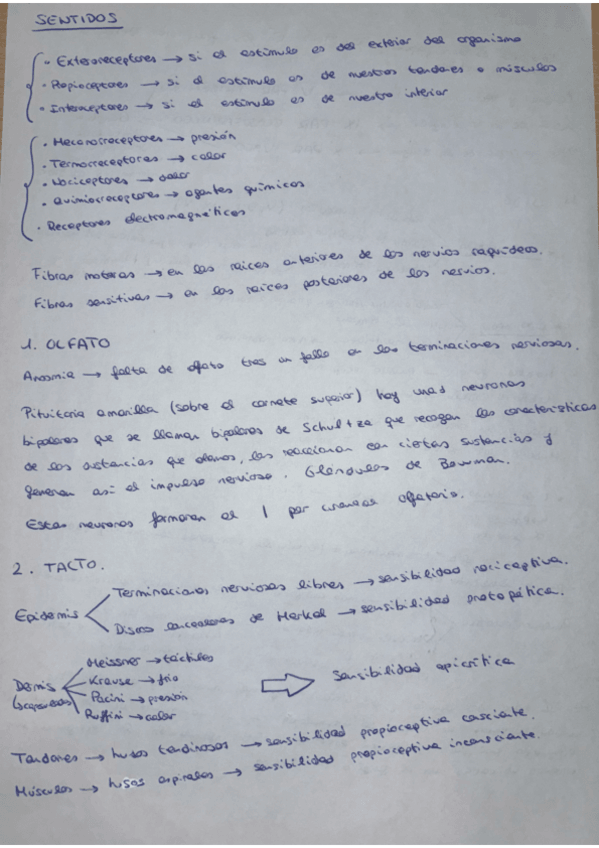 SENTIDOS
- Exteroreceptores → si el estímulo es del exterior del organismo
- Propioceptores → si el estímulo es de nuestros tendones o músculos
- Interoceptores → si el estímulo es de nuestro interior
- Mecanorreceptores → presión
- Termorreceptores → calor
- Nociceptores → dolor
- Quimiorreceptores → agentes químicos
- Receptores electromagnéticos
Fibras motoras → en las raíces anteriores de los nervios raquídeos.
Fibras sensitivas → en las raíces posteriores de los nervios.
1. OLFATO
Anosmia → falta de olfato tras un fallo en las terminaciones nerviosas.
Pituitaria amarilla (sobre el cornete superior) hay unas neuronas
bipolares que se llaman bipolares de Schultza que recogen las características
de las sustancias que olemos, las reaccionan con ciertas sustancias y
generan así el impulso nervioso. Glándulas de Bowman.
Estas neuronas formaran el 1 par craneal olfatorio.
2. TACTO.
Epidermis
Terminaciones nerviosas libres → sensibilidad nociceptiva.
Discos de Merkel → sensibilidad protopática.
Dermis
Meissner → táctiles
Krause → frío
Pacini → presión
Ruffini → calor
Sensibilidad epicrítica
Tendones → husos tendinosos → sensibilidad propioceptiva consciente.
Músculos → husos espirales → sensibilidad propioceptiva inconsciente.